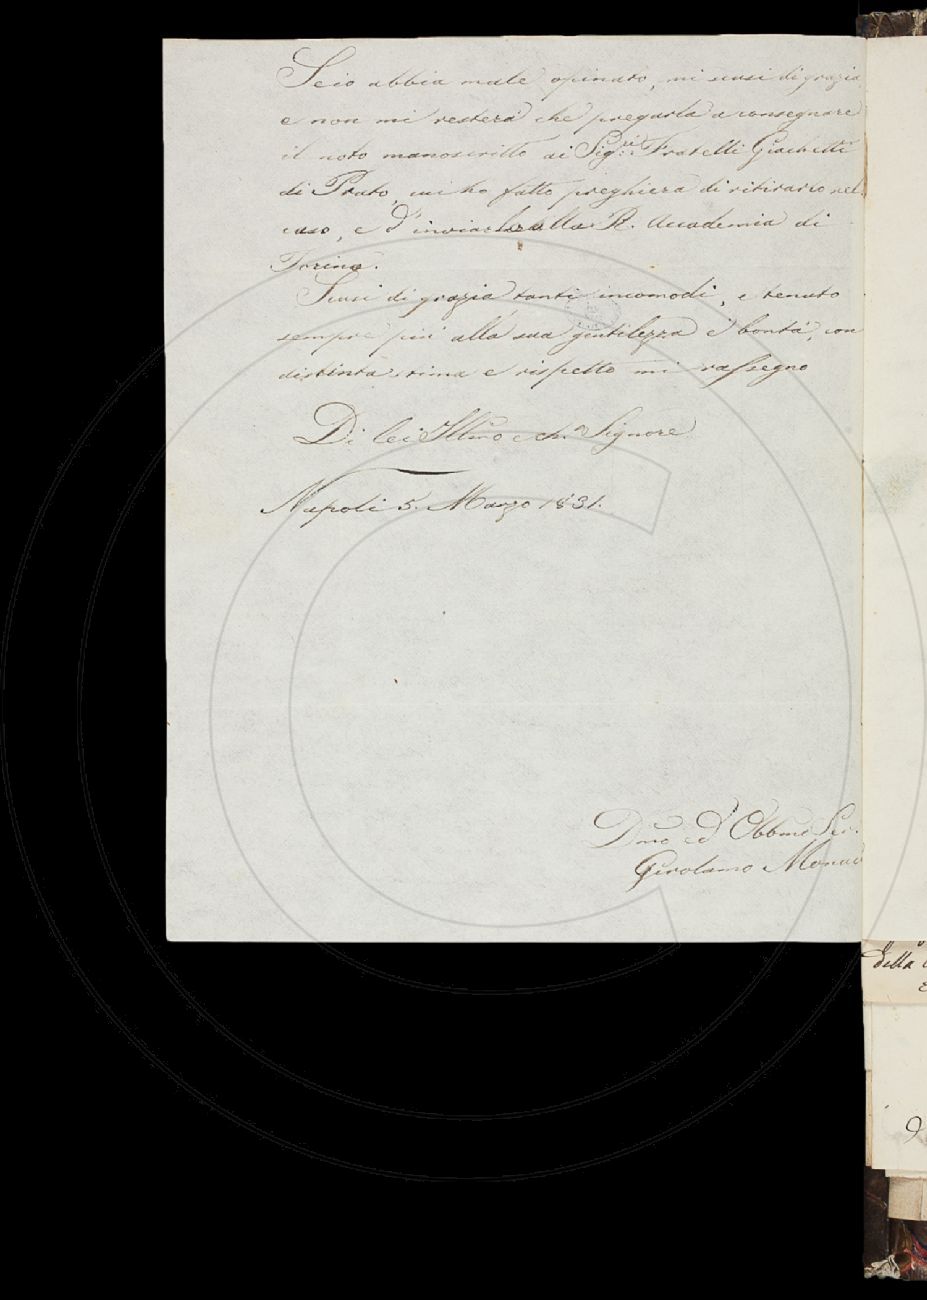 Se io abbia male opinato, mi scusi di grazia
e non mi resterà che pregarla a consegnare
il noto manoscritto ai Sig.ri Fratelli Giachetti
di Prato, cui ho fatto preghiera di ritirarlo nel
caso, e d'inviarlo alla R. Accademia di
Torino.
Scusi di grazia tanti incomodi, e tenuto
sempre più alla sua gentilezza e bontà, con
distinta stima e rispetto mi rassegno
Di lei Illmo e ch.o Signore
Napoli 5. Marzo 1831.
Dmo ed Obbmo Ser.
Girolamo
della